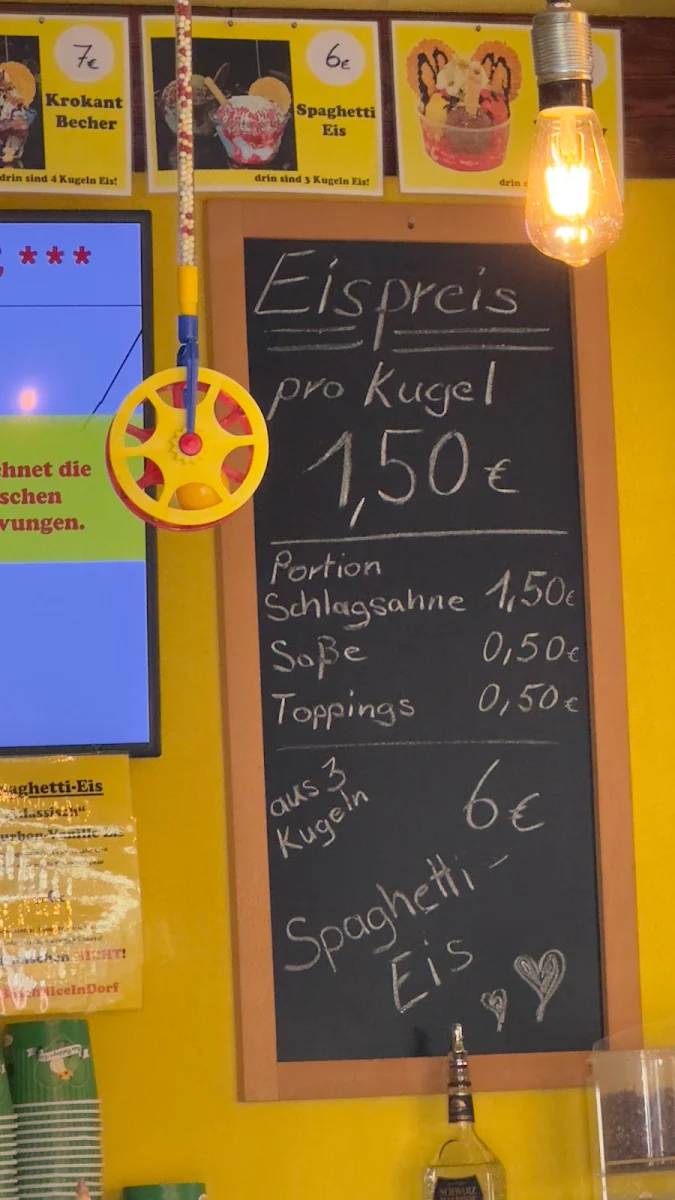 7€
Krokant
Becher
drin sind 4 Kugeln Eis!
6€
Spaghetti
Eis
drin sind 3 Kugeln Eis!
drin
***
chnet die
schen
vungen.
Eispreis
pro Kugel
1,50 €
Portion
Schlagsahne 1,50€
Soße 0,50€
Toppings 0,50€
aus 3
Kugeln
6€
Spaghetti-
Eis
aghetti-Eis
lassisch"
urbon-Vanille Eis
NICHT!
IceInDorf
SCHWARZ